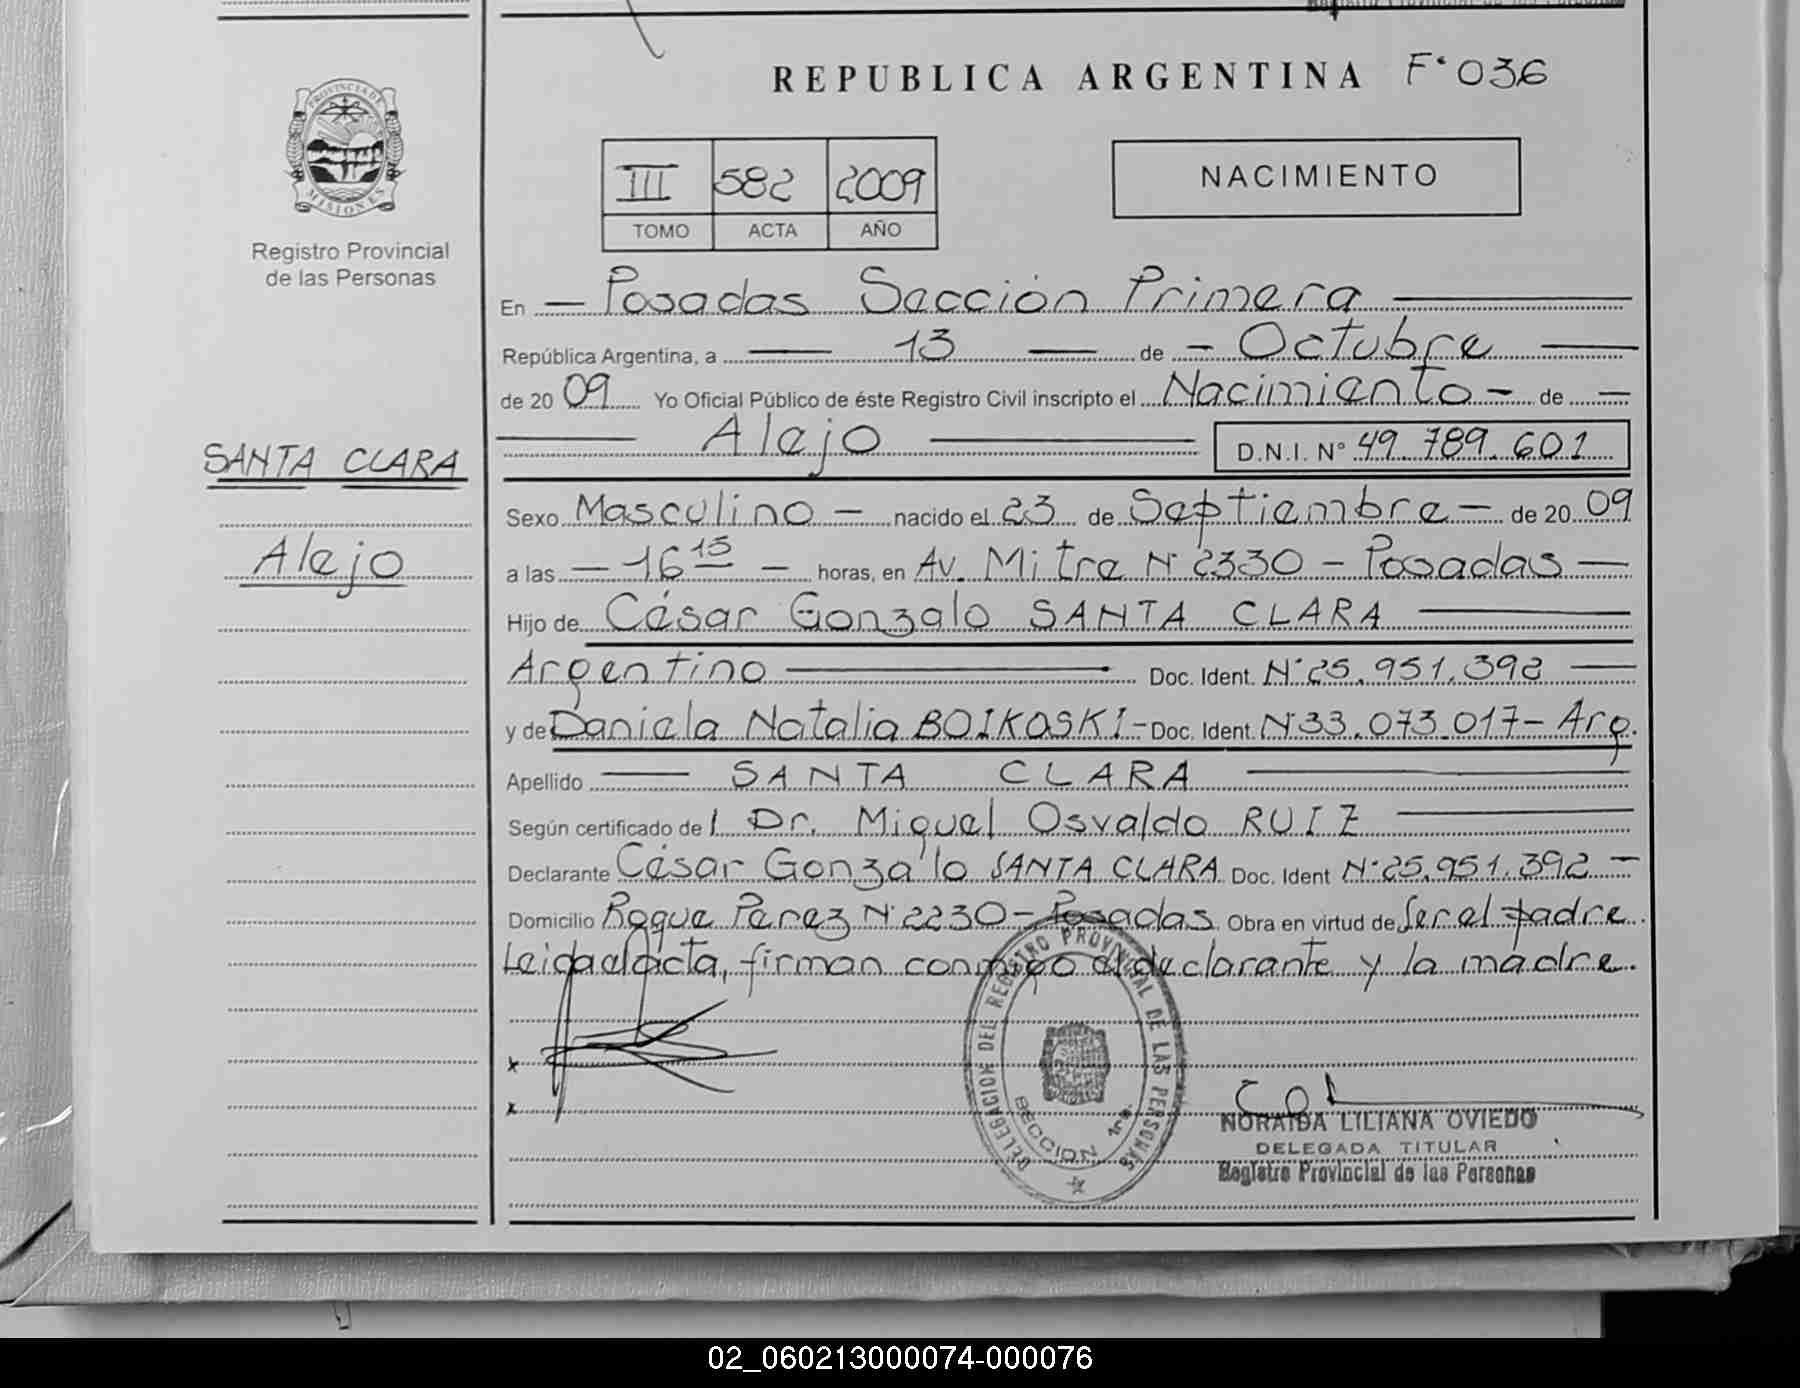 REPUBLICA ARGENTINA F° 036
PROVINCIA DE MISIONES
Registro Provincial
de las Personas
III 582 2009
TOMO ACTA AÑO
NACIMIENTO
En Posadas Sección Primera
República Argentina, a 13 de Octubre
de 2009 Yo Oficial Público de éste Registro Civil inscripto el Nacimiento - de
Alejo D.N.I. N° 49.789.601
SANTA CLARA
Alejo
Sexo Masculino - nacido el 23 de Septiembre - de 2009
a las - 16 15 - horas, en Av. Mitre N° 2330 - Posadas -
Hijo de César Gonzalo SANTA CLARA
Argentino Doc. Ident. N° 25.951.392
y de Daniela Natalia BOIKOSKI - Doc. Ident. N° 33.073.017 - Arg.
Apellido SANTA CLARA
Según certificado del Dr. Miguel Osvaldo RUIZ
Declarante César Gonzalo SANTA CLARA Doc. Ident N° 25.951.392 -
Domicilio Roque Perez N° 2230 - Posadas Obra en virtud de ser el padre.
Leida el acta, firman conmigo el declarante y la madre.
x
x
DELEGACION DEL REGISTRO PROVINCIAL DE LAS PERSONAS
SECCION 1ra.
NORAIDA LILIANA OVIEDO
DELEGADA TITULAR
Registro Provincial de las Personas
02_060213000074-000076